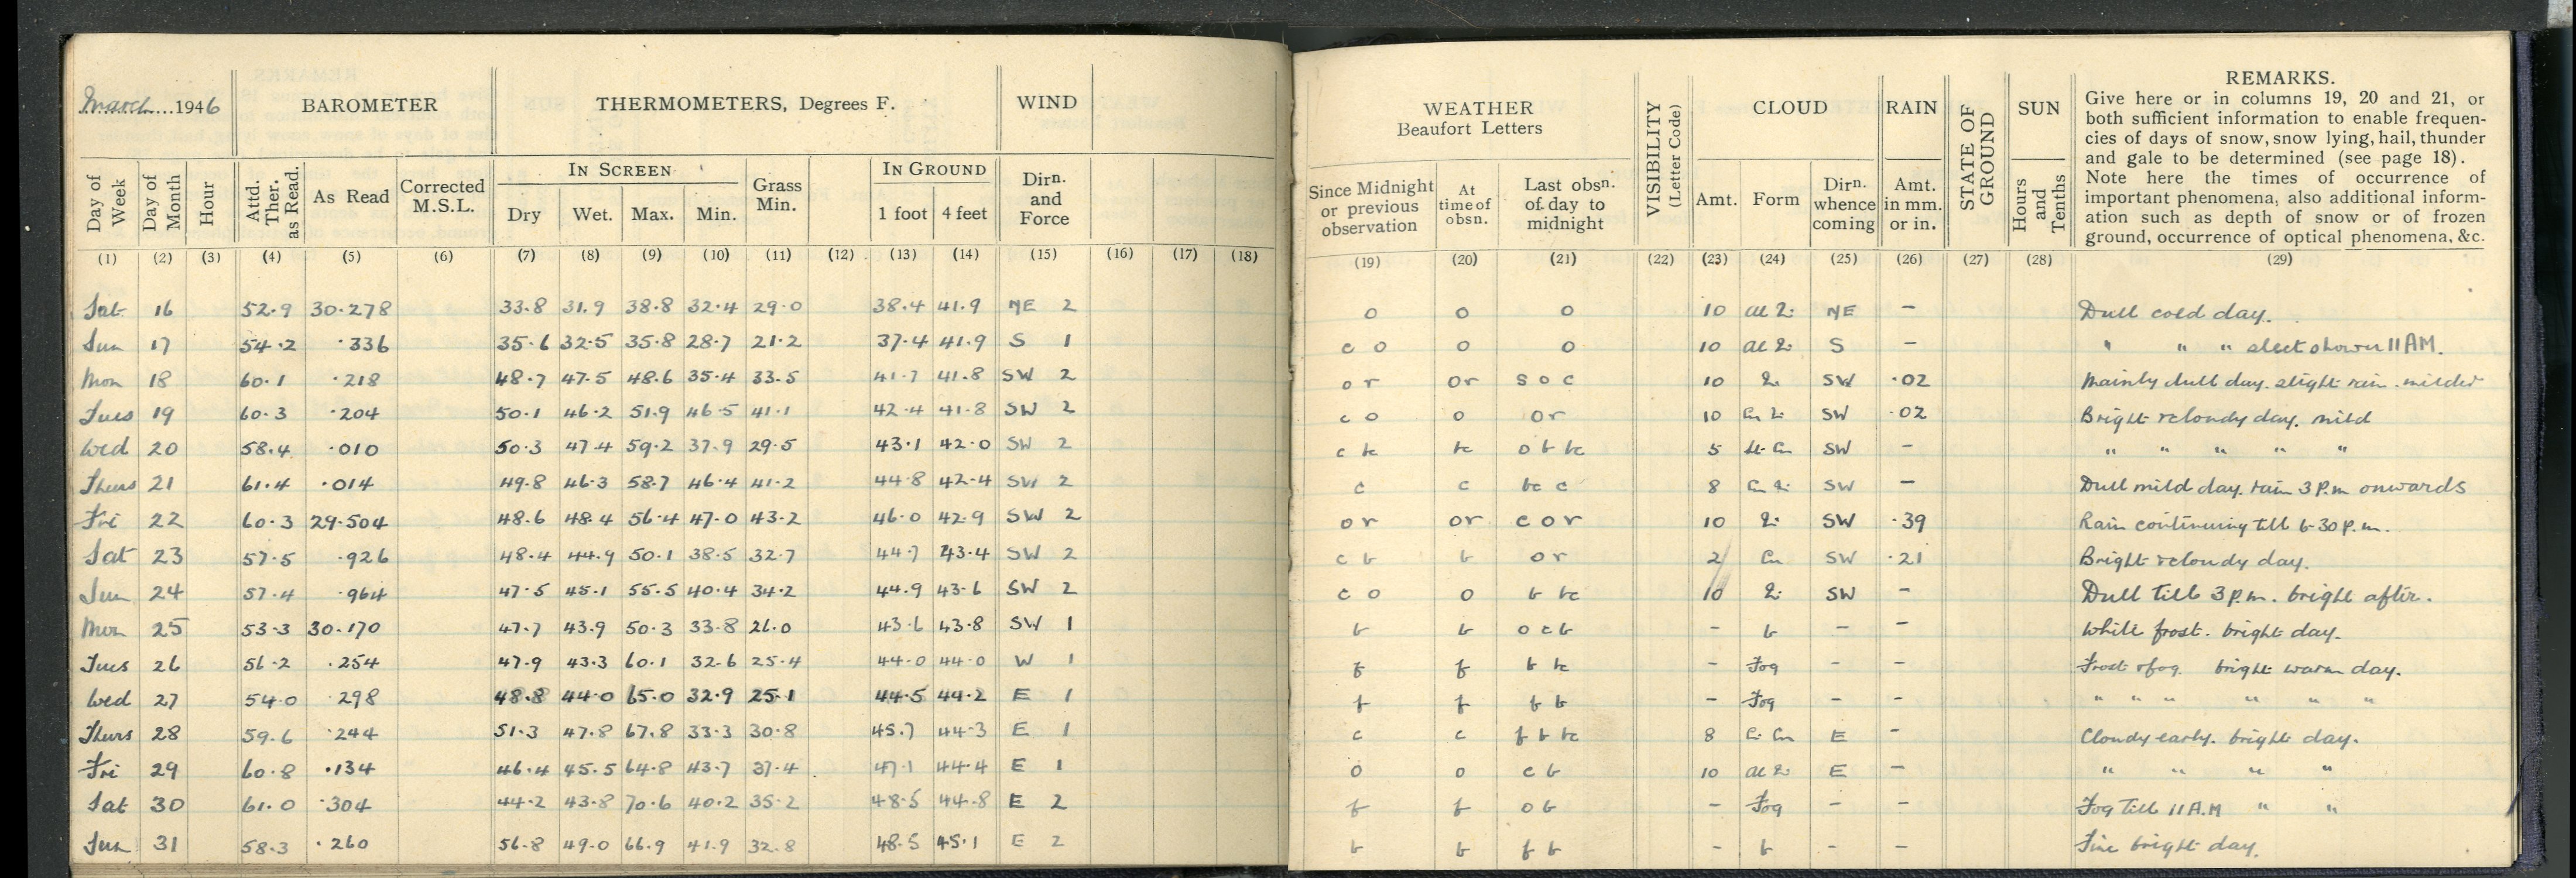 March...1946
BAROMETER
THERMOMETERS, Degrees F.
WIND
Day of Week
Day of Month
Hour
Attd. Ther. as Read.
As Read
Corrected M.S.L.
IN SCREEN
Dry Wet. Max. Min.
Grass Min.
IN GROUND
1 foot 4 feet
Dirn. and Force
(1) (2) (3) (4) (5) (6) (7) (8) (9) (10) (11) (12) (13) (14) (15) (16) (17) (18)
Sat 16 52.9 30.278 33.8 31.9 38.8 32.4 29.0 38.4 41.9 NE 2
Sun 17 54.2 .336 35.6 32.5 35.8 28.7 21.2 37.4 41.9 S 1
Mon 18 60.1 .218 48.7 47.5 48.6 35.4 33.5 41.7 41.8 SW 2
Tues 19 60.3 .204 50.1 46.2 51.9 46.5 41.1 42.4 41.8 SW 2
Wed 20 58.4 .010 50.3 47.4 59.2 37.9 29.5 43.1 42.0 SW 2
Thurs 21 61.4 .014 49.8 46.3 58.7 46.4 41.2 44.8 42.4 SW 2
Fri 22 60.3 29.504 48.6 48.4 56.4 47.0 43.2 46.0 42.9 SW 2
Sat 23 57.5 .926 48.4 44.9 50.1 38.5 32.7 44.7 43.4 SW 2
Sun 24 57.4 .964 47.5 45.1 55.5 40.4 34.2 44.9 43.6 SW 2
Mon 25 53.3 30.170 47.7 43.9 50.3 33.8 26.0 43.6 43.8 SW 1
Tues 26 56.2 .254 47.9 43.3 60.1 32.6 25.4 44.0 44.0 W 1
Wed 27 54.0 .298 48.8 44.0 65.0 32.9 25.1 44.5 44.2 E 1
Thurs 28 59.6 .244 51.3 47.8 67.8 33.3 30.8 45.7 44.3 E 1
Fri 29 60.8 .134 46.4 45.5 64.8 43.7 37.4 47.1 44.4 E 1
Sat 30 61.0 .304 44.2 43.8 70.6 40.2 35.2 48.5 44.8 E 2
Sun 31 58.3 .260 56.8 49.0 66.9 41.9 32.8 48.5 45.1 E 2
WEATHER
Beaufort Letters
Since Midnight or previous observation
At time of obsn.
Last obsn. of day to midnight
VISIBILITY (Letter Code)
CLOUD
Amt. Form
Dirn. whence coming
RAIN
Amt. in mm. or in.
STATE OF GROUND
SUN
Hours and Tenths
REMARKS.
Give here or in columns 19, 20 and 21, or
both sufficient information to enable frequen-
cies of days of snow, snow lying, hail, thunder
and gale to be determined (see page 18).
Note here the times of occurrence of
important phenomena, also additional inform-
ation such as depth of snow or of frozen
ground, occurrence of optical phenomena, &c.
(19) (20) (21) (22) (23) (24) (25) (26) (27) (28) (29)
o o o 10 NE - Dull cold day.
c o o o 10 S - " " " sleet shower 11 AM.
o r o r s o c 10 SW .02 Mainly dull day. slight rain. milder
c o o o r 10 SW .02 Bright & cloudy day. mild
c bc bc o b bc 5 SW - " " " " "
c c bc c 8 SW - Dull mild day. rain 3 P.m onwards
o r o r c o r 10 SW .39 Rain continuing till 6-30 p.m.
c b b o r 2 Cu SW .21 Bright & cloudy day.
c o o b bc 10 SW - Dull till 3 p.m. bright after.
b b o c b - b - - White frost. bright day.
f f b bc - Fog - - Frost & fog. bright warm day.
f f b b - Fog - - " " " " " "
c c f b bc 8 E - Cloudy early. bright day.
o o c b 10 E - " " " "
f f o b - Fog - - Fog till 11 A.M " "
b b f b - b - - Fine bright day.